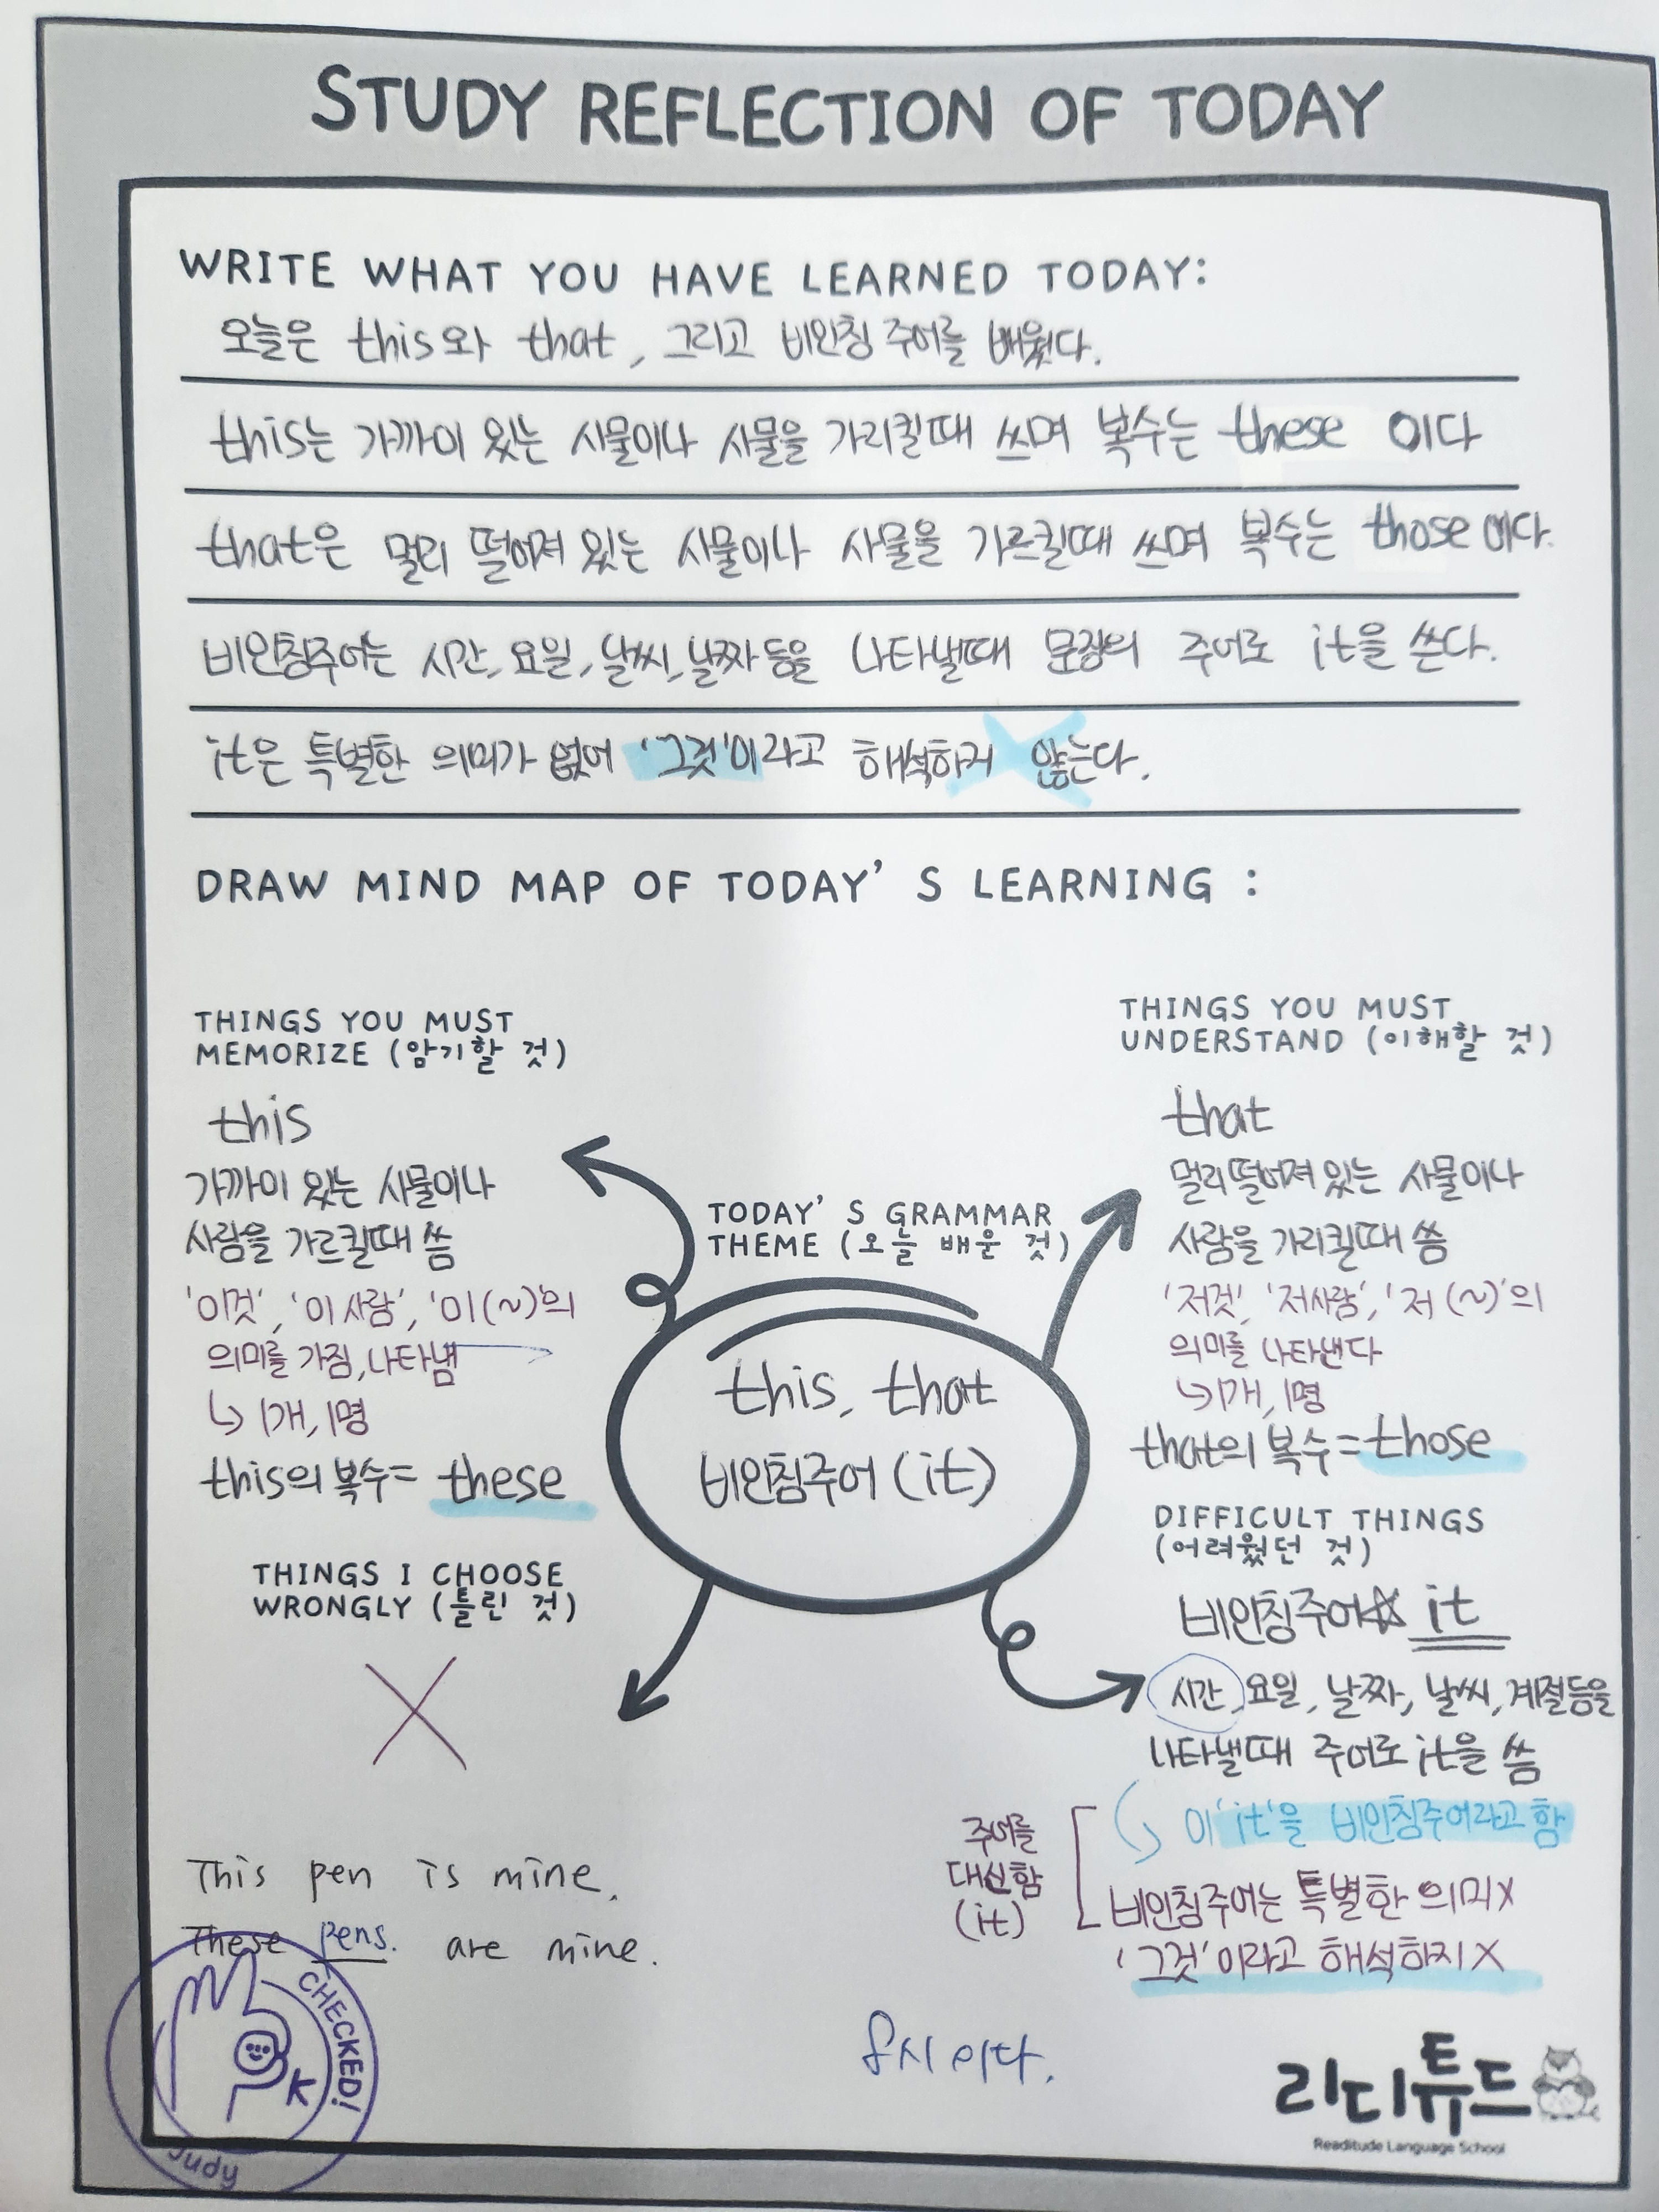 STUDY REFLECTION OF TODAY
WRITE WHAT YOU HAVE LEARNED TODAY:
오늘은 this와 that, 그리고 비인칭 주어를 배웠다.
this는 가까이 있는 사물이나 사물을 가리킬때 쓰며 복수는 these 이다
that은 멀리 떨어져 있는 사물이나 사물을 가르킬때 쓰며 복수는 those 이다.
비인칭주어는 시간, 요일, 날씨, 날짜 등을 나타낼때 문장의 주어로 it을 쓴다.
it은 특별한 의미가 없어 '그것'이라고 해석하지 않는다.
DRAW MIND MAP OF TODAY'S LEARNING :
THINGS YOU MUST
MEMORIZE (암기할 것)
this
가까이 있는 사물이나
사람을 가르킬때 씀
'이것', '이 사람', '이(~)'의
의미를 가짐, 나타냄
↳ 1개, 1명
this의 복수= these
THINGS YOU MUST
UNDERSTAND (이해할 것)
that
멀리떨어져 있는 사물이나
사람을 가리킬때 씀
'저것', '저사람', '저 (~)'의
의미를 나타낸다
↳ 1개, 1명
that의 복수=those
TODAY'S GRAMMAR
THEME (오늘 배운 것)
this, that
비인칭주어 (it)
THINGS I CHOOSE
WRONGLY (틀린 것)
X
DIFFICULT THINGS
(어려웠던 것)
비인칭주어☆ it
시간, 요일, 날짜, 날씨, 계절등을
나타낼때 주어로 it을 씀
이 'it'을 비인칭주어라고 함
주어를
대신함
(it)
비인칭주어는 특별한 의미X
'그것'이라고 해석하지X
This pen is mine.
These pens. are mine.
8시 이다.
CHECKED!
K
Judy
리디튜드
Readitude Language School